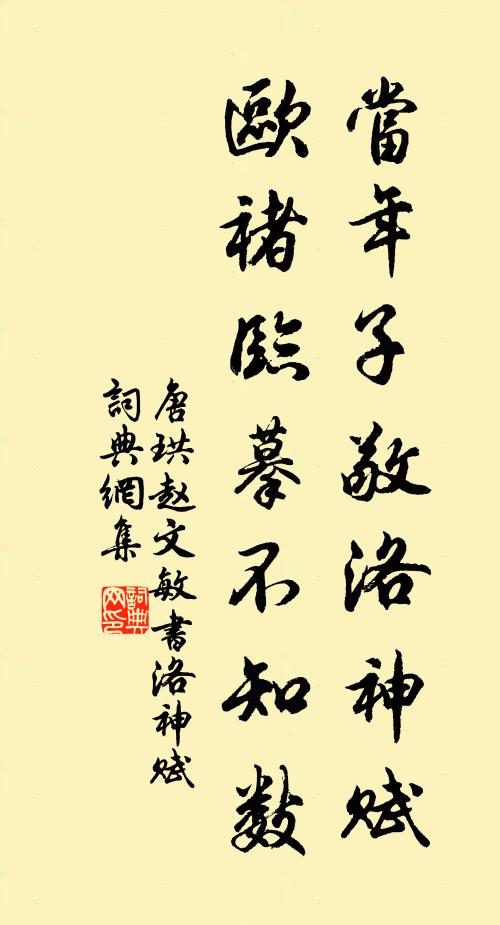 當年子敬洛神賦
歐褚臨摹不知數
唐珙赵文敏書洛神賦
詞典網集
詞典網印